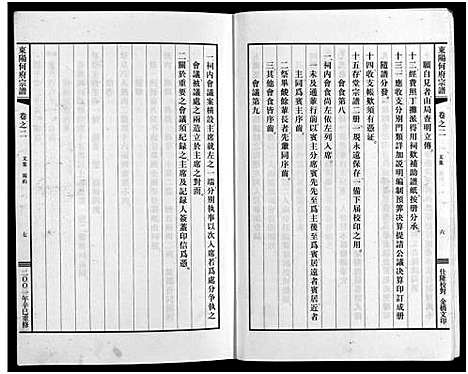 願自見者由局查明立傳
十二經費照丁攤派得用祠欵補助譜紙按册分承
十三一應收支分別門類詳加說明編制預算決算提請公議决算印訂成册
隨譜分發
十四收支帳欵須有憑証
十五存堂宗譜二册一現永遠保存一備下屆校印之用
會食第八
一未及通輩行前以賓主分席賓先主後至賓居遠者賓居近者
主同爲賓主序齒
二祭畢餕餘輩長者先靈同序齒
三其他會食皆序齒
會議第九
東陽何府宗譜
卷之二
文集
六
仕隆校對 金橋文印
一祠內會食尚左依左列入席
一祠內會議案橫設主席就左之一端分別執事以次入席若爲處分爭執之
會被議處之兩造立於主席之對面
二關於重要之會議須紀錄之主席及記錄人簽蓋印信爲憑
東陽何府宗譜
卷之二
文集
規約
七
二00一年辛巳重修